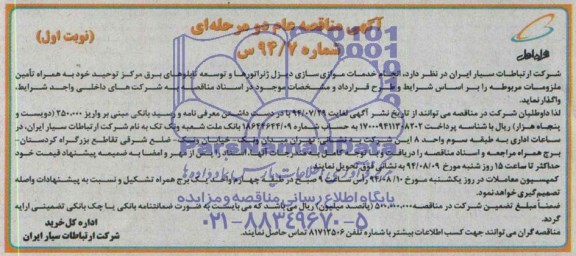 آگهی مناقصه عام دو مرحله‌ای
شماره ۹۴/۷ س
(نوبت اول)
همراه اول
شرکت ارتباطات سیار ایران در نظر دارد، انجام خدمات موازی سازی دیزل ژنراتورها و توسعه تابلوهای برق مرکز توحید خود به همراه تأمین
ملزومات مربوطه را بر اساس شرایط و طرح قرارداد و مشخصات موجود در اسناد مناقصه به شرکت های داخلی واجد شرایط،
واگذار نماید.
لذا داوطلبان شرکت در مناقصه می توانند از تاریخ نشر آگهی لغایت ۹۴/۰۷/۲۹ با در دست داشتن معرفی نامه و رسید بانکی مبنی بر واریز ۲۵۰،۰۰۰ (دویست و
پنجاه هزار) ریال با شناسه پرداخت به شماره حساب بانک ملت شعبه ونک تک به نام شرکت ارتباطات سیار ایران، در
ساعات اداری به طبقه سوم واحد خیابان ضلع شرقی تقاطع بزرگراه کردستان-
برج همراه مراجعه و اسناد مناقصه را دریافت از مهر و امضا به ضمیمه پیشنهاد قیمت خود
حداکثر تا ساعت ۱۵ روز شنبه مورخ ۹۴/۰۸/۰۹ به نشانی فوق تحویل نمایند.
کمیسیون معاملات در روز یکشنبه مورخ ۹۴/۰۸/۱۰ صبح در طبقه چهارم برج همراه تشکیل و نسبت به پیشنهادات واصله
تصمیم گیری خواهد نمود.
ضمناً مبلغ تضمین شرکت در مناقصه ۵۰۰،۰۰۰،۰۰۰ (پانصد میلیون) ریال می باشد که می بایست به صورت ضمانتنامه بانکی یا چک بانکی تضمینی ارایه
گردد.
مناقصه گران می توانند جهت کسب اطلاعات بیشتر با شماره تلفن ۸۱۷۱۲۵۰۶ تماس حاصل نمایند.
اداره کل خرید
شرکت ارتباطات سیار ایران
ParsNamadData
پایگاه اطلاع رسانی مناقصه و مزایده
۰۲۱-۸۸۳۴۹۶۷۰-۵